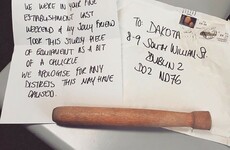 WE WERE IN YOUR FINE
ESTABLISHMENT LAST
WEEKEND & MY JOLLY FRIEND
TOOK THIS STURDY PIECE
OF EQUIPMENT AS A BIT
OF A CHUCKLE
WE APOLOGISE FOR ANY
DISTRESS THIS MAY HAVE
CAUSED.
TO DAKOTA
8-9 SOUTH WILLIAM ST.
DUBLIN 2
D02 ND76